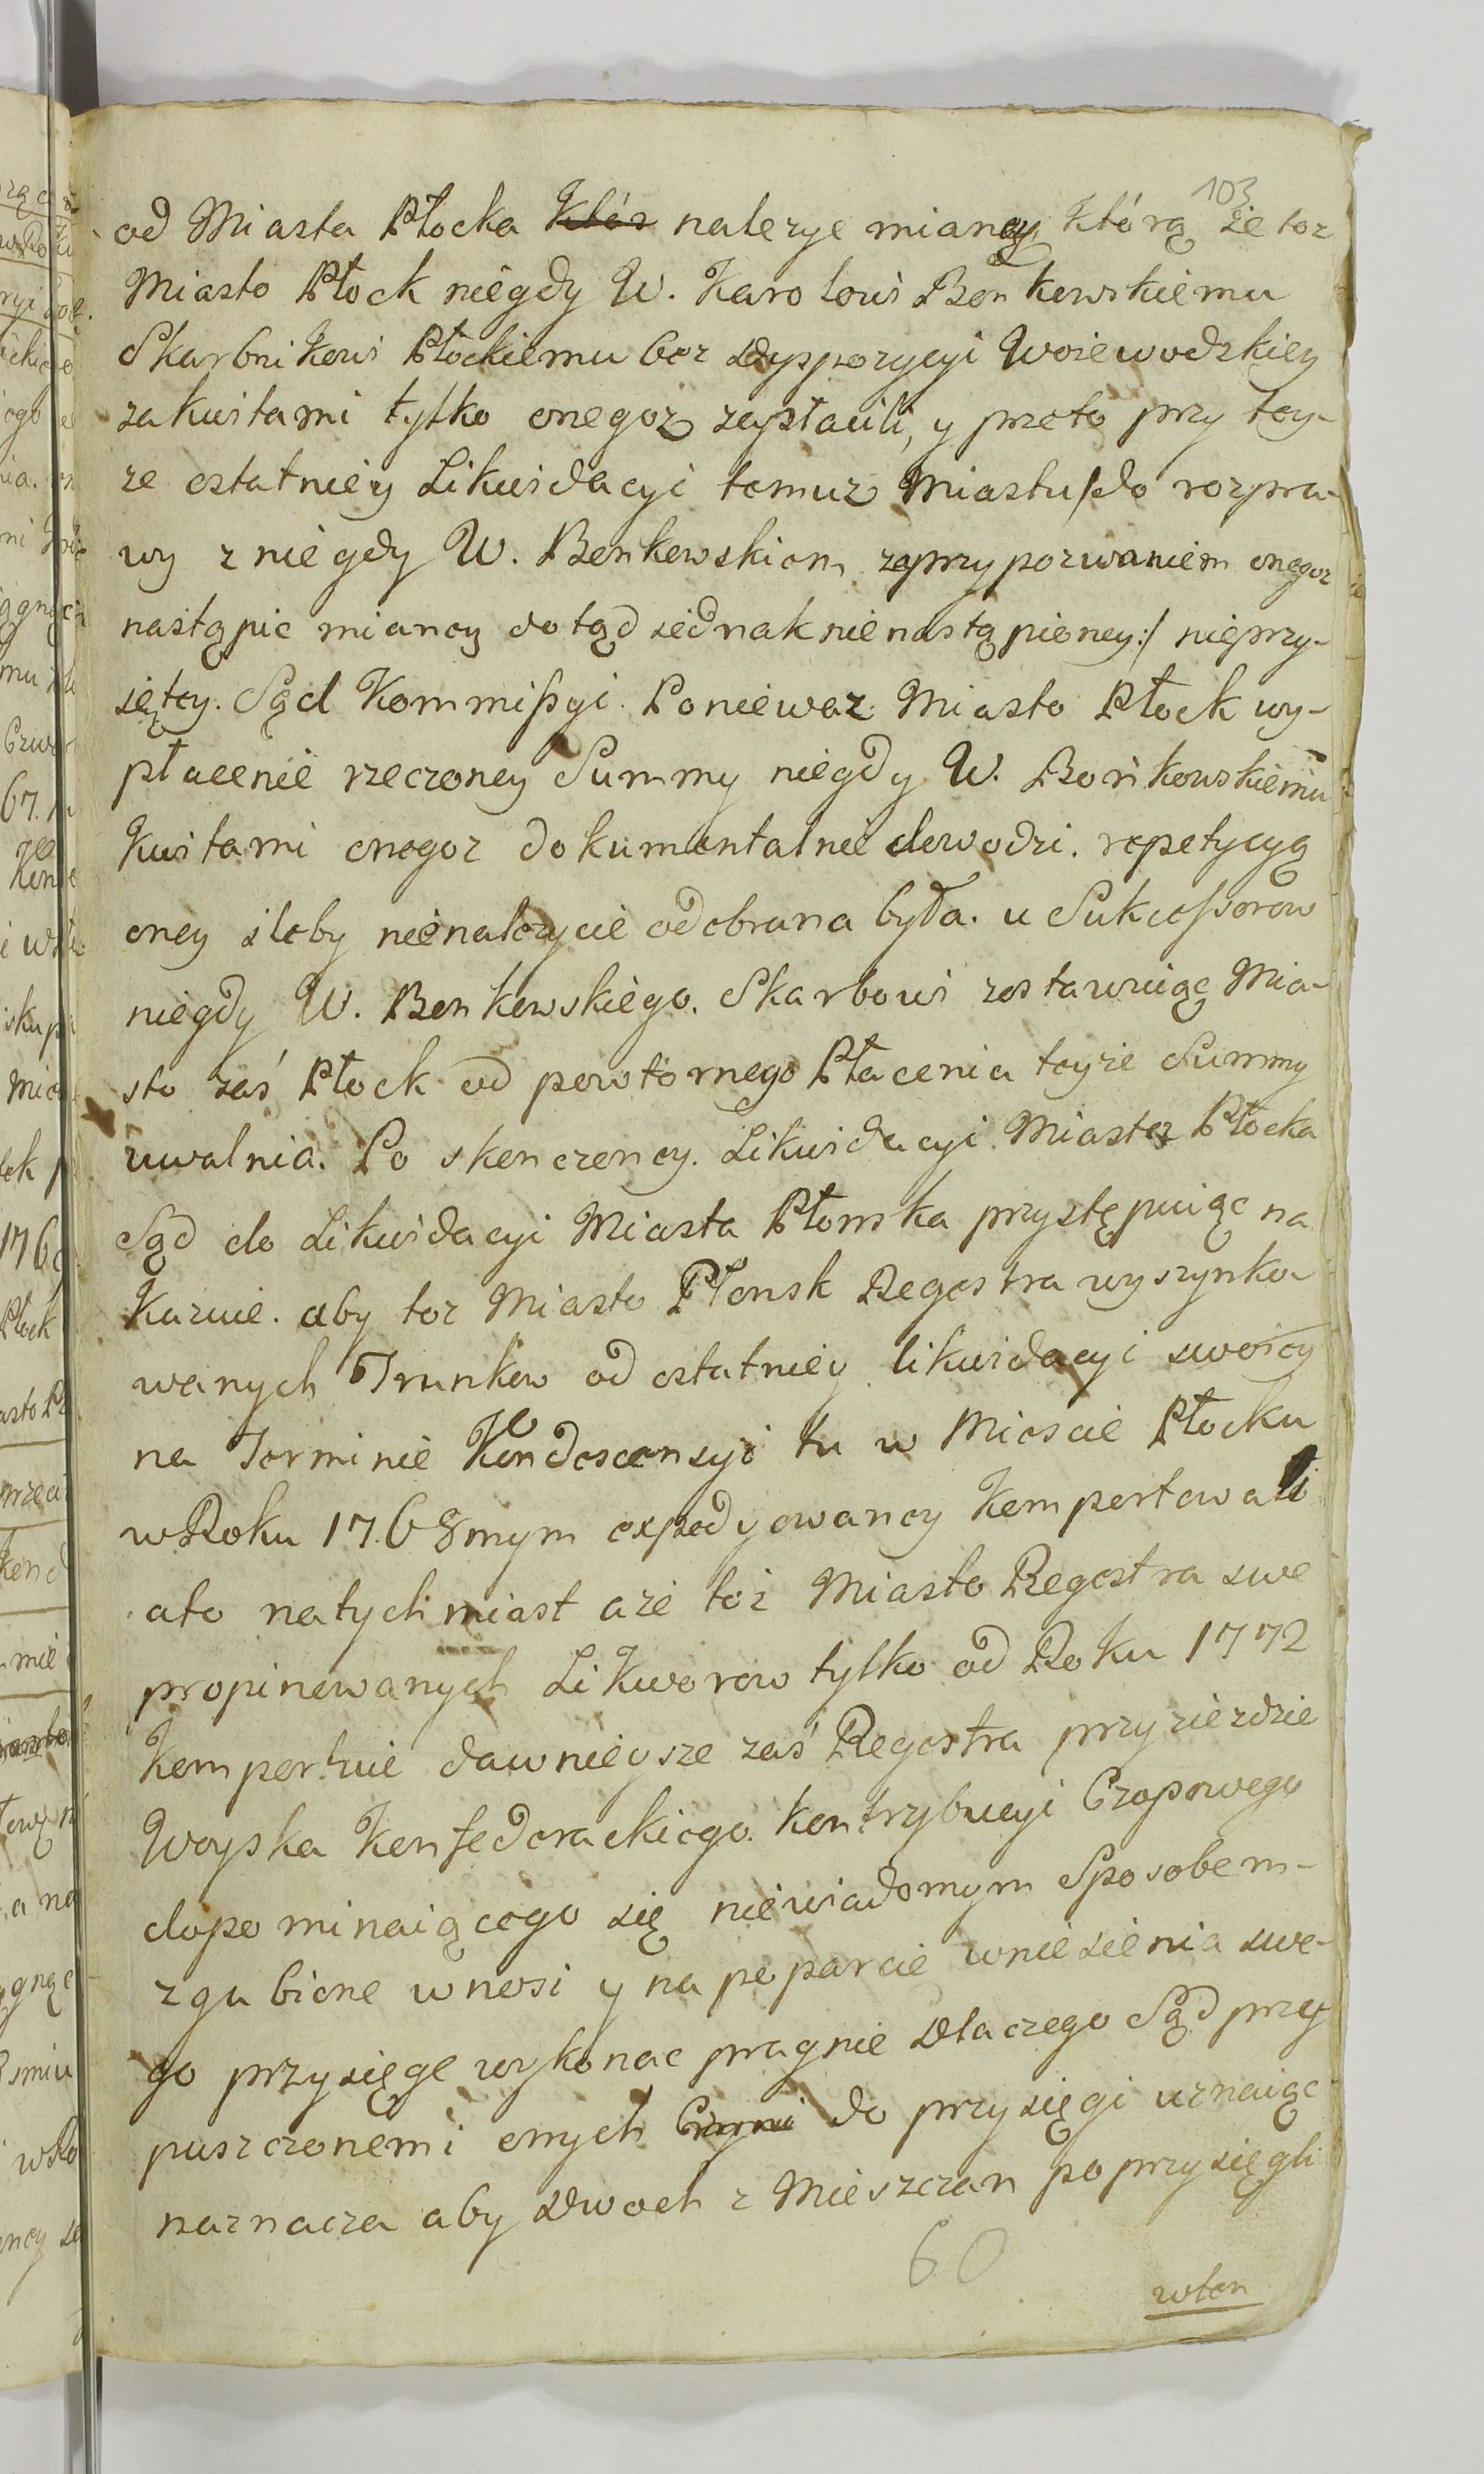 103
od Miasta Płocka Któr nalezyc mianey którą ze toz
Miasto Płock niegdy W. Karolowi Bonkowskiemu
Skarbnikowi Płockiemu bez Dyspozycyi Woiewodzkiey
za kwitami tylko onegoz zapłacili, y przeto przy tey-
ze ostatniey Likwidacyi temuz Miastu /:do rozpra-
wy z niegdy W. Bonkowskiem za przypozwaniem onegoz
nastąpic mianey dotąd iednak nienastąpioney:/ nieprzy-
ięty. Sąd Kommissyi Poniewaz Miasto Płock wy-
płacenie rzeczoney Summy niegdy W. Bońkowskiemu
kwitami onegoz dokumentalnie dowodzi. repetycyą
oney iżeby nienalezycie odebrana była. u Sukcessorow
niegdy W. Bonkowskiego. Skarbowi zostawuiąc Mia-
sto zaś Płock od powtornego Płacenia teyże Summy
uwalnia. Po skonczoney. Likwidacyi Miasta Płocka
Sąd do Likwidacyi Miasta Płonska przystępuiąc na
kazuie. aby toz Miasto Płonsk Regestra wyszynko-
wanych Trunkow od ostatniey likwidacyi swoiey
na Terminie Kondescensyi tu w Miescie Płocku
w Roku 1768mym expedyowaney komportowali
ato natychmiast aże toż Miasto Regestra swe
propinowanych Likworow tylko od Roku 1772
komportuie dawnieysze zaś Regestra przy zieżdzie
Woyska Konfederackiego. kontrybucyi Czopowego
dopominaiącego się niewiadomym Sposobem-
zgubione wnosi y na poparcie wniesienia swe-
go przysięgę wykonac pragnie Dlaczego Sąd przy
puszczonemi onych do przysięgi uznaiąc
naznacza aby Dwoch z Mieszczan poprzysięgli
60
wten